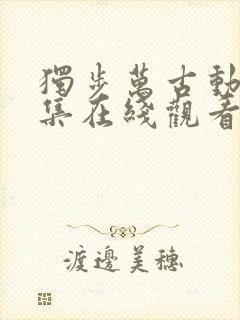 獨步萬古動
集在綫觀看
渡邊美穗